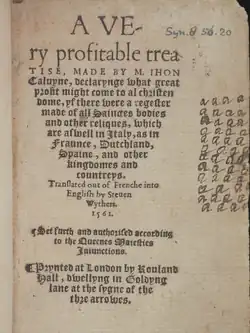 Syn. 8 56. 20
A VE-
ry profitable trea
TISE, MADE BY M. IHON
Caluyne, declarynge what great
profit might come to al christen
dome, yf there were a regester
made of all Sainctes bodies
and other reliques, which
are aswell in Italy, as in
Fraunce, Dutchland,
Spaine, and other
kingdomes and
countreys.
Translated out of Frenche into
English by Steuen
Wythers.
1561.
Set furth and authorised according
to the Queenes Maiesties
Iniunctions.
Prynted at London by Rouland
Hall, dwellyng in Goldyng
lane at the sygne of the
thre arrowes.